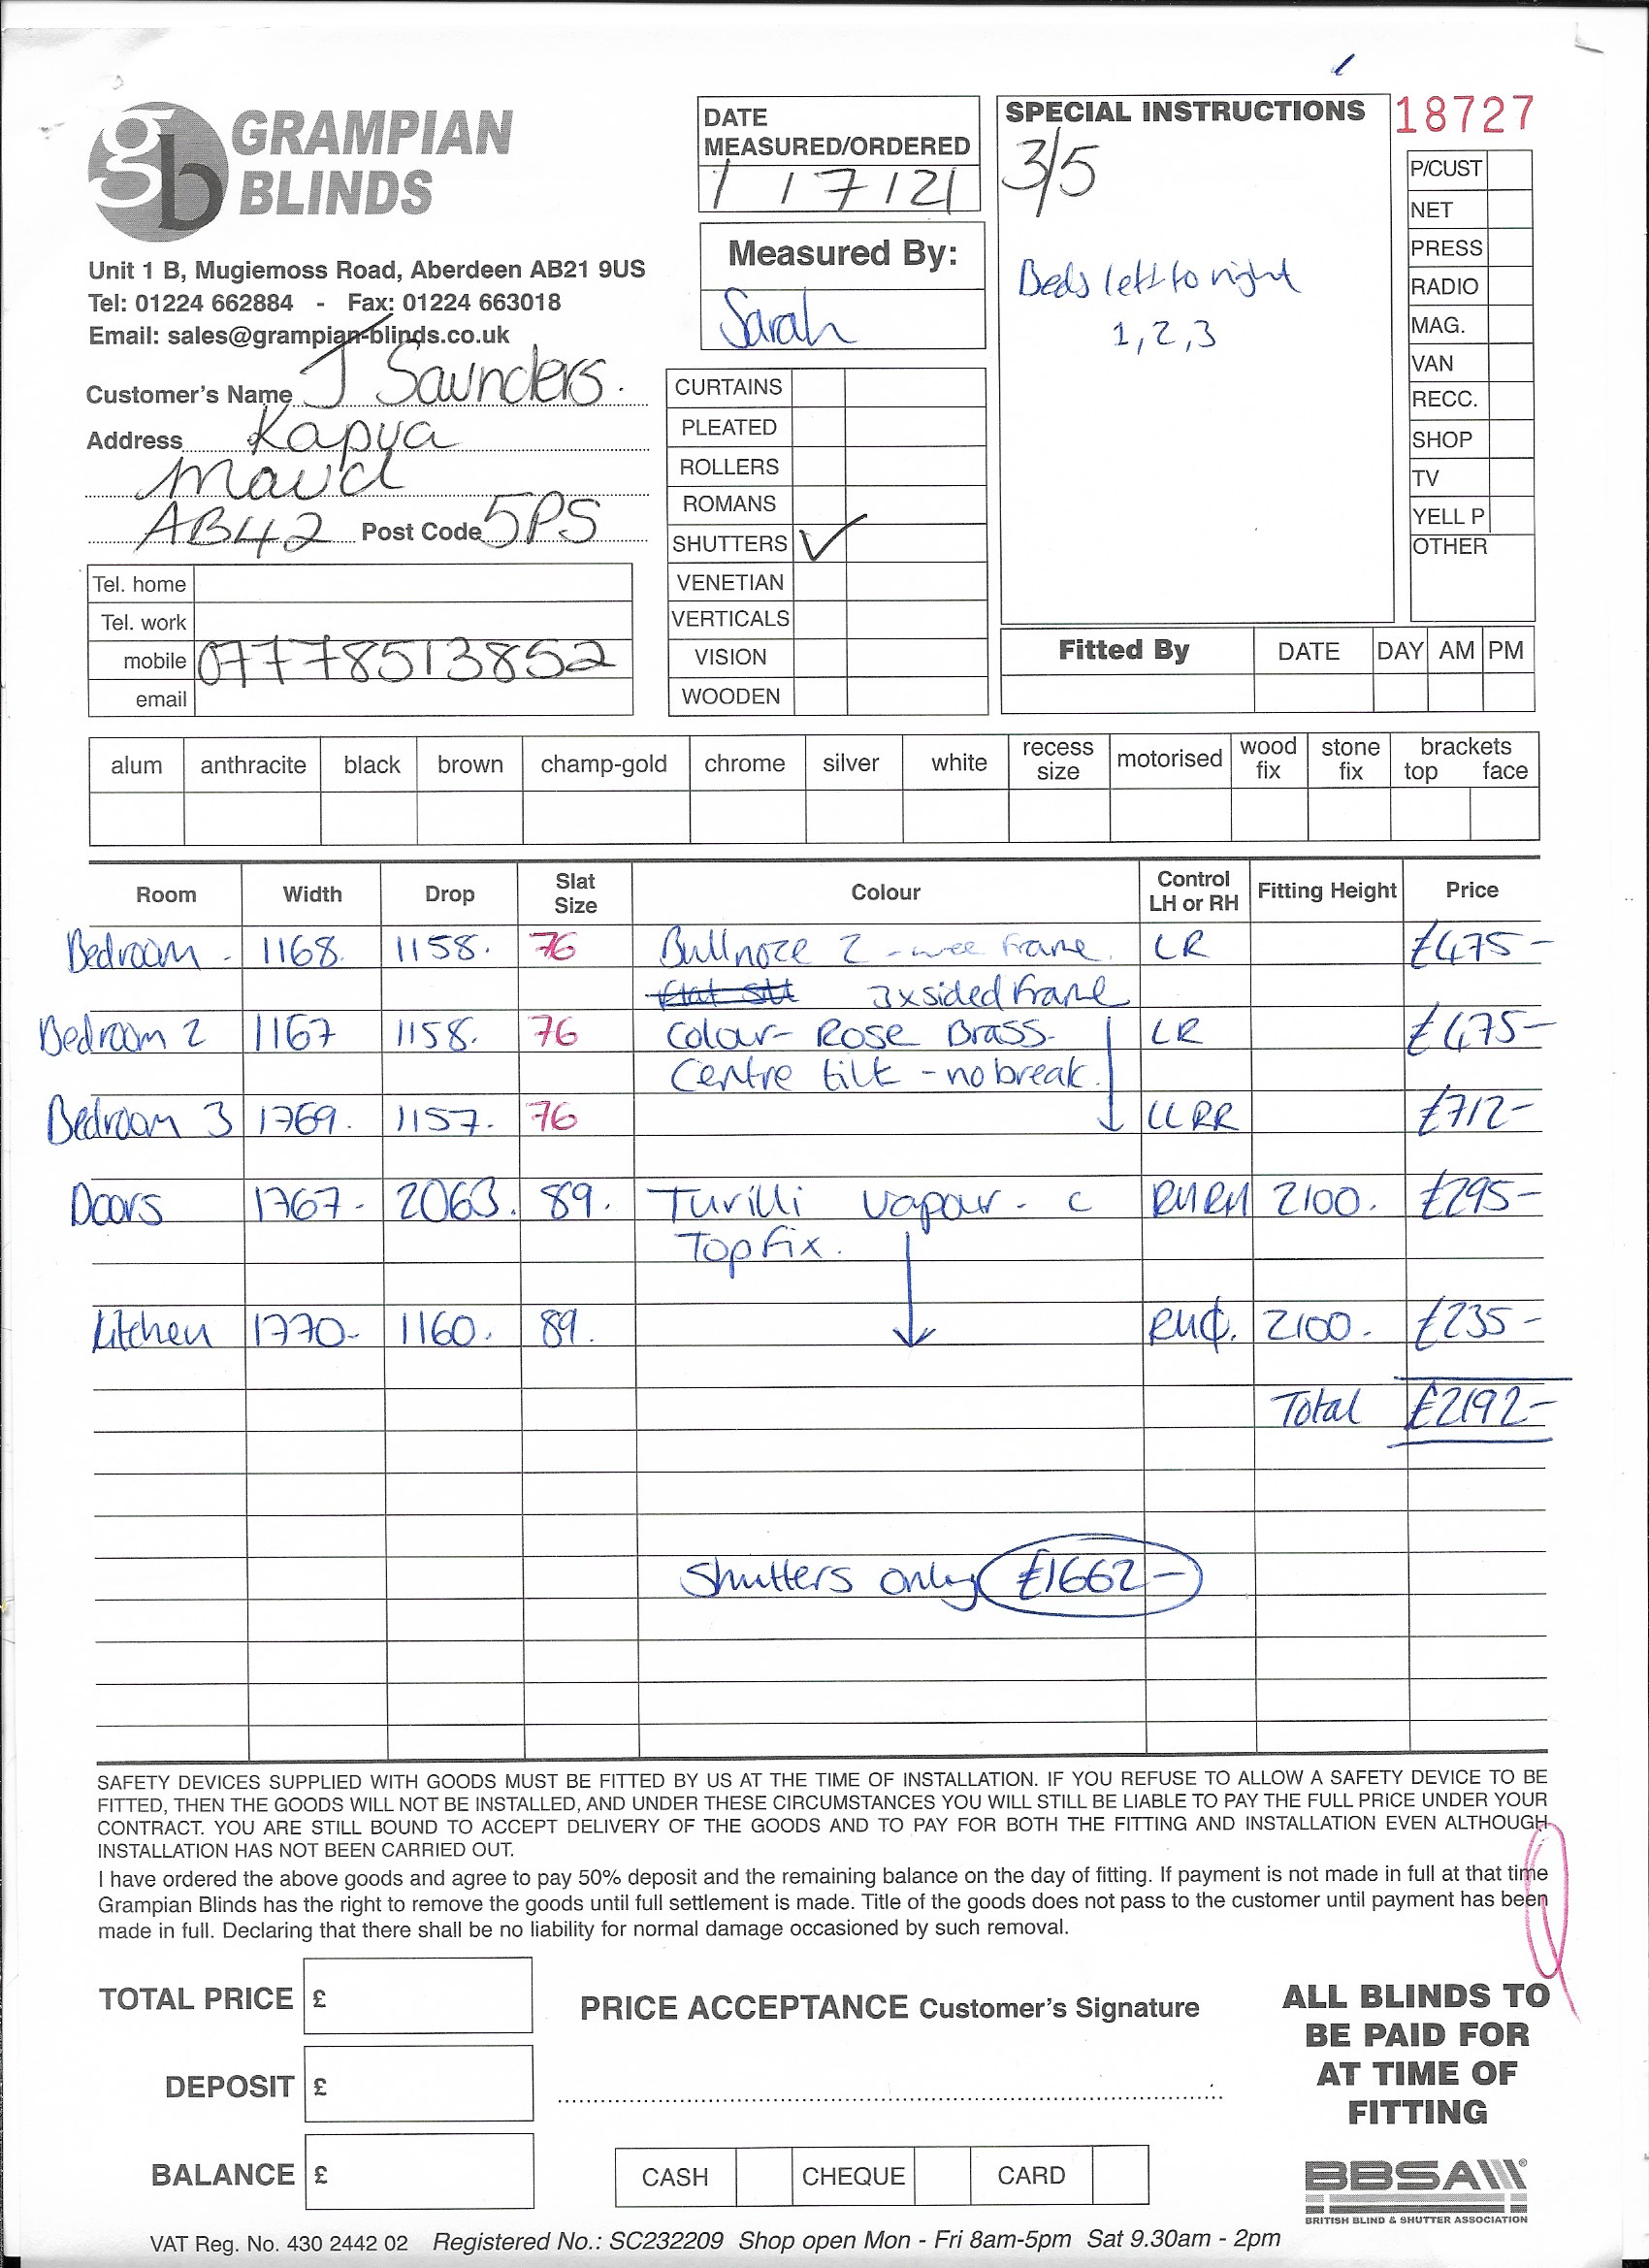 GRAMPIAN
BLINDS
Unit 1 B, Mugiemoss Road, Aberdeen AB21 9US
Tel: 01224 662884 - Fax: 01224 663018
Email: sales@grampian-blinds.co.uk
Customer's Name J Saunders.
Address Kapya
Maud
AB42 Post Code 5PS
Tel. home
Tel. work
mobile 07778513852
email
DATE
MEASURED/ORDERED
1 / 7 / 21
Measured By:
Sarah
CURTAINS
PLEATED
ROLLERS
ROMANS
SHUTTERS ✓
VENETIAN
VERTICALS
VISION
WOODEN
SPECIAL INSTRUCTIONS
3/5
Beds left to right
1, 2, 3
18727
P/CUST
NET
PRESS
RADIO
MAG.
VAN
RECC.
SHOP
TV
YELL P
OTHER
Fitted By DATE DAY AM PM
alum anthracite black brown champ-gold chrome silver white recess size motorised wood fix stone fix brackets top face
Room Width Drop Slat Size Colour Control LH or RH Fitting Height Price
Bedroom - 1168. 1158. 76 Bullnoze Z - wee frame. LR £475-
3xsided frame
Bedroom 2 1167 1158. 76 Colour- Rose Brass. LR £475-
Centre tilt - no break.
Bedroom 3 1769. 1157. 76 LLRR £712-
Doors 1767- 2063. 89. Turilli Vapour - c RHRH 2100. £295-
Top fix.
Kitchen 1770- 1160. 89. 2100. £235-
Total £2192-
Shutters only £1662-
SAFETY DEVICES SUPPLIED WITH GOODS MUST BE FITTED BY US AT THE TIME OF INSTALLATION. IF YOU REFUSE TO ALLOW A SAFETY DEVICE TO BE
FITTED, THEN THE GOODS WILL NOT BE INSTALLED, AND UNDER THESE CIRCUMSTANCES YOU WILL STILL BE LIABLE TO PAY THE FULL PRICE UNDER YOUR
CONTRACT. YOU ARE STILL BOUND TO ACCEPT DELIVERY OF THE GOODS AND TO PAY FOR BOTH THE FITTING AND INSTALLATION EVEN ALTHOUGH
INSTALLATION HAS NOT BEEN CARRIED OUT.
I have ordered the above goods and agree to pay 50% deposit and the remaining balance on the day of fitting. If payment is not made in full at that time
Grampian Blinds has the right to remove the goods until full settlement is made. Title of the goods does not pass to the customer until payment has been
made in full. Declaring that there shall be no liability for normal damage occasioned by such removal.
TOTAL PRICE £
DEPOSIT £
BALANCE £
PRICE ACCEPTANCE Customer's Signature
CASH CHEQUE CARD
ALL BLINDS TO
BE PAID FOR
AT TIME OF
FITTING
BBSA
BRITISH BLIND & SHUTTER ASSOCIATION
VAT Reg. No. 430 2442 02 Registered No.: SC232209 Shop open Mon - Fri 8am-5pm Sat 9.30am - 2pm